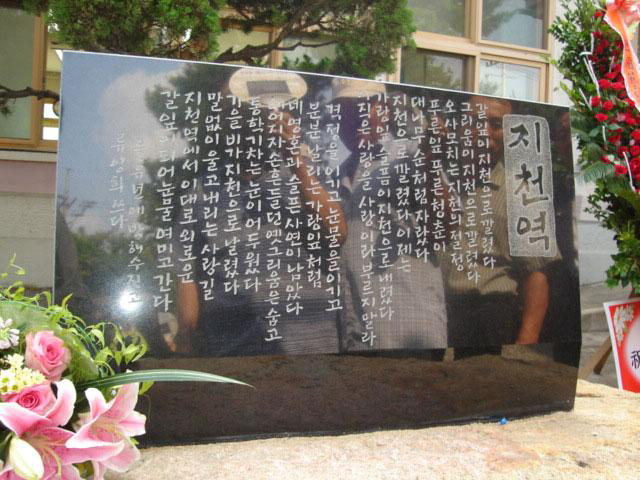 지천역
갈잎이 지천으로 깔렸다
그리움이 지천으로 깔렸다
오 사모치는 지천의 절정
푸른잎 푸른 청춘이
대나무 순처럼 자랐다
지천으로 깔렸다 이제는
가랑잎 슬픔이 지천으로 내렸다
작은 사랑을 사랑이라 부르지 말라
격전을 이기고 눈물을 이기고
분분 날리는 가랑잎처럼
네 영혼과 슬픈 사연이 남았다
손 흔들던 옛 그 님은 숨고
동학기차는 눈이 어두웠다
기을비가 지천으로 날렸다
말없이 울고 내리는 사랑길
지천역에서 이대로 외로운
갈잎 되어 눈물 여미고 간다
년에 박해수 짓고
류영희 쓰다
祝